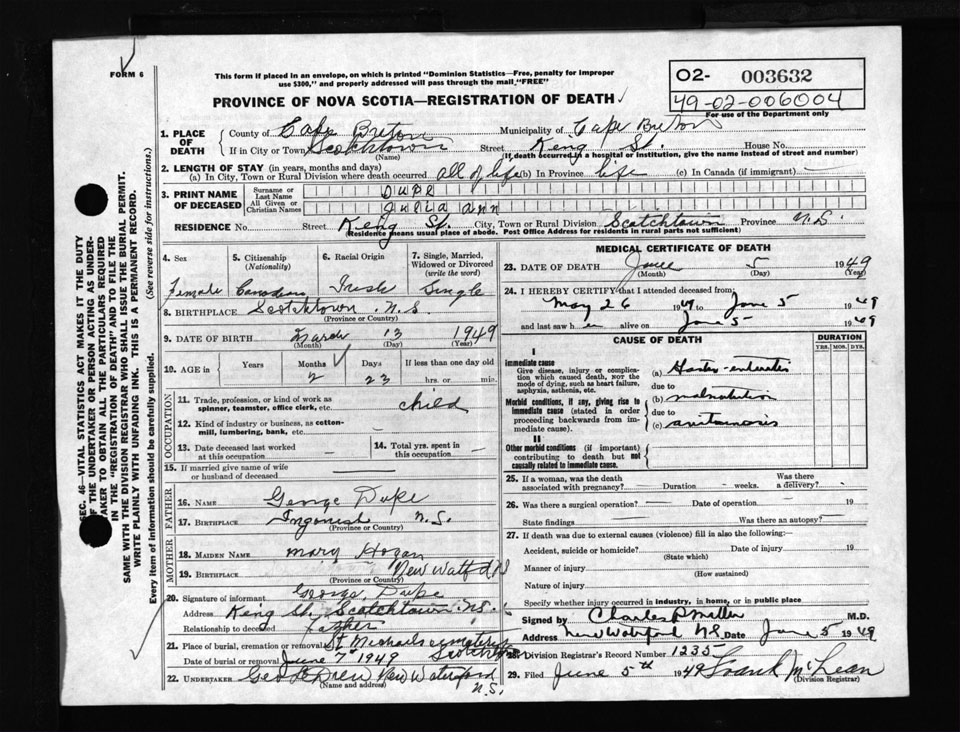 FORM 6
This form if placed in an envelope, on which is printed "Dominion Statistics—Free, penalty for improper
use $300," and properly addressed will pass through the mail "FREE"
O2- 003632
49-02-006004
For use of the Department only
PROVINCE OF NOVA SCOTIA—REGISTRATION OF DEATH
1. PLACE OF DEATH
County of Cape Breton Municipality of Cape Breton
If in City or Town Scotchtown Street King St. House No.
(Name) (If death occurred in a hospital or institution, give the name instead of street and number)
2. LENGTH OF STAY (in years, months and days)
(a) In City, Town or Rural Division where death occurred all of life (b) In Province life (c) In Canada (if immigrant)
3. PRINT NAME OF DECEASED
Surname or Last Name DUPE
All Given or Christian Names Julia ann
RESIDENCE No. Street King St. City, Town or Rural Division Scotchtown Province N.S.
(Residence means usual place of abode. Post Office Address for residents in rural parts not sufficient)
4. Sex
Female
5. Citizenship
(Nationality)
Canadian
6. Racial Origin
Irish
7. Single, Married, Widowed or Divorced
(write the word)
Single
8. BIRTHPLACE Scotchtown N.S.
(Province or Country)
9. DATE OF BIRTH March 13 1949
(Month) (Day) (Year)
10. AGE in Years Months Days If less than one day old
2 23 hrs. or min.
OCCUPATION
11. Trade, profession, or kind of work as
spinner, teamster, office clerk, etc. child
12. Kind of industry or business, as cotton-
mill, lumbering, bank, etc.
13. Date deceased last worked
at this occupation
14. Total yrs. spent in
this occupation
15. If married give name of wife
or husband of deceased
FATHER
16. NAME George Dupe
17. BIRTHPLACE Ingonish N.S.
(Province or Country)
MOTHER
18. MAIDEN NAME Mary Hogan
19. BIRTHPLACE New Watfd NS
(Province or Country)
20. Signature of informant George Dupe
Address King St. Scotchtown N.S.
Relationship to deceased Father
21. Place of burial, cremation or removal St Michaels cemetery
Scotchtown
Date of burial or removal June 7 1949
22. UNDERTAKER Geo L Drew New Waterford
(Name and address) N.S.
MEDICAL CERTIFICATE OF DEATH
23. DATE OF DEATH June 5 1949
(Month) (Day) (Year)
24. I HEREBY CERTIFY that I attended deceased from:
May 26 1949 to June 5 1949
and last saw her alive on June 5 1949
CAUSE OF DEATH
DURATION
YRS. MOS. DYS.
I
Immediate cause
Give disease, injury or complica-
tion which caused death, NOT the
mode of dying, such as heart failure,
asphyxia, asthenia, etc.
(a) Gastro-enteritis
due to
Morbid conditions, if any, giving rise to
immediate cause (stated in order
proceeding backwards from im-
mediate cause).
(b) malnutrition
due to
(c) avitaminosis
II
Other morbid conditions (if important)
contributing to death but not
causally related to immediate cause.
25. If a woman, was the death
associated with pregnancy? Duration weeks. Was there
a delivery?
26. Was there a surgical operation? Date of operation 19
State findings Was there an autopsy?
27. If death was due to external causes (violence) fill in also the following:
Accident, suicide or homicide? Date of injury 19
(State which)
Manner of injury
(How sustained)
Nature of injury
Specify whether injury occurred in industry, in home, or in public place
Signed by Charles P Miller M.D.
Address New Waterford N.S. Date June 5 1949
28. Division Registrar's Record Number 1235
29. Filed June 5th 1949 Frank McLean
(Division Registrar)
SEC. 46—VITAL STATISTICS ACT MAKES IT THE DUTY
OF THE UNDERTAKER OR PERSON ACTING AS UNDER-
TAKER TO OBTAIN ALL THE PARTICULARS REQUIRED
IN THE "REGISTRATION OF DEATH" AND TO FILE THE
SAME WITH THE DIVISION REGISTRAR WHO SHALL ISSUE THE BURIAL PERMIT.
WRITE PLAINLY WITH UNFADING INK. THIS IS A PERMANENT RECORD.
Every item of information should be carefully supplied. (See reverse side for instructions.)